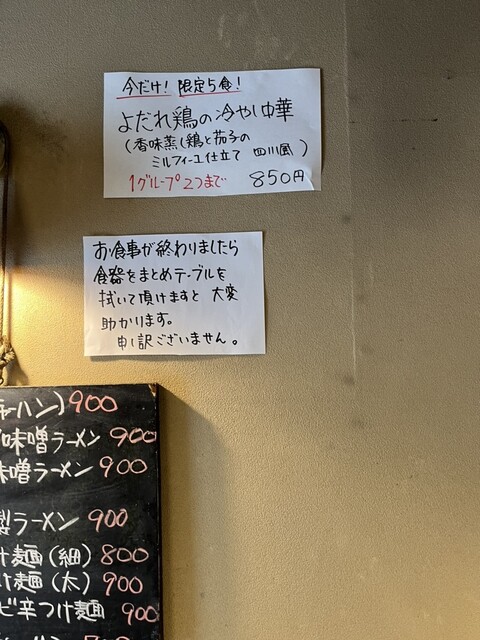 今だけ！限定5食！
よだれ鶏の冷やし中華
（香味蒸し鶏と茄子の
ミルフィーユ仕立て 四川風）
1グループ2つまで 850円
お食事が終わりましたら
食器をまとめテーブルを
拭いて頂けますと 大変
助かります。
申し訳ございません。
チャーハン）900
味噌ラーメン 900
味噌ラーメン 900
製ラーメン 900
け麺（細）800
け麺（太）900
ビ辛つけ麺 900